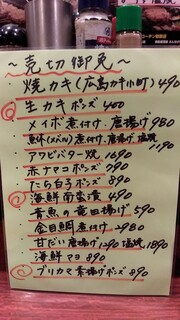 ～売切御免～
・焼カキ(広島カキ小町)490
・生カキポンズ 400
・メイボ煮付け、唐揚げ980
・魚休(メベル)煮付け、唐揚げ、塩焼 1190
・アワビバター焼 1690
・赤ナマコポンズ 790
・たら白子ポンズ 890
・海鮮南蛮漬 490
・青魚の竜田揚げ 590
・金目鯛煮付け 2980
・甘だい唐揚げ1290 塩焼1890
・海鮮マヨ 890
・ブリカマ素揚げポンズ890